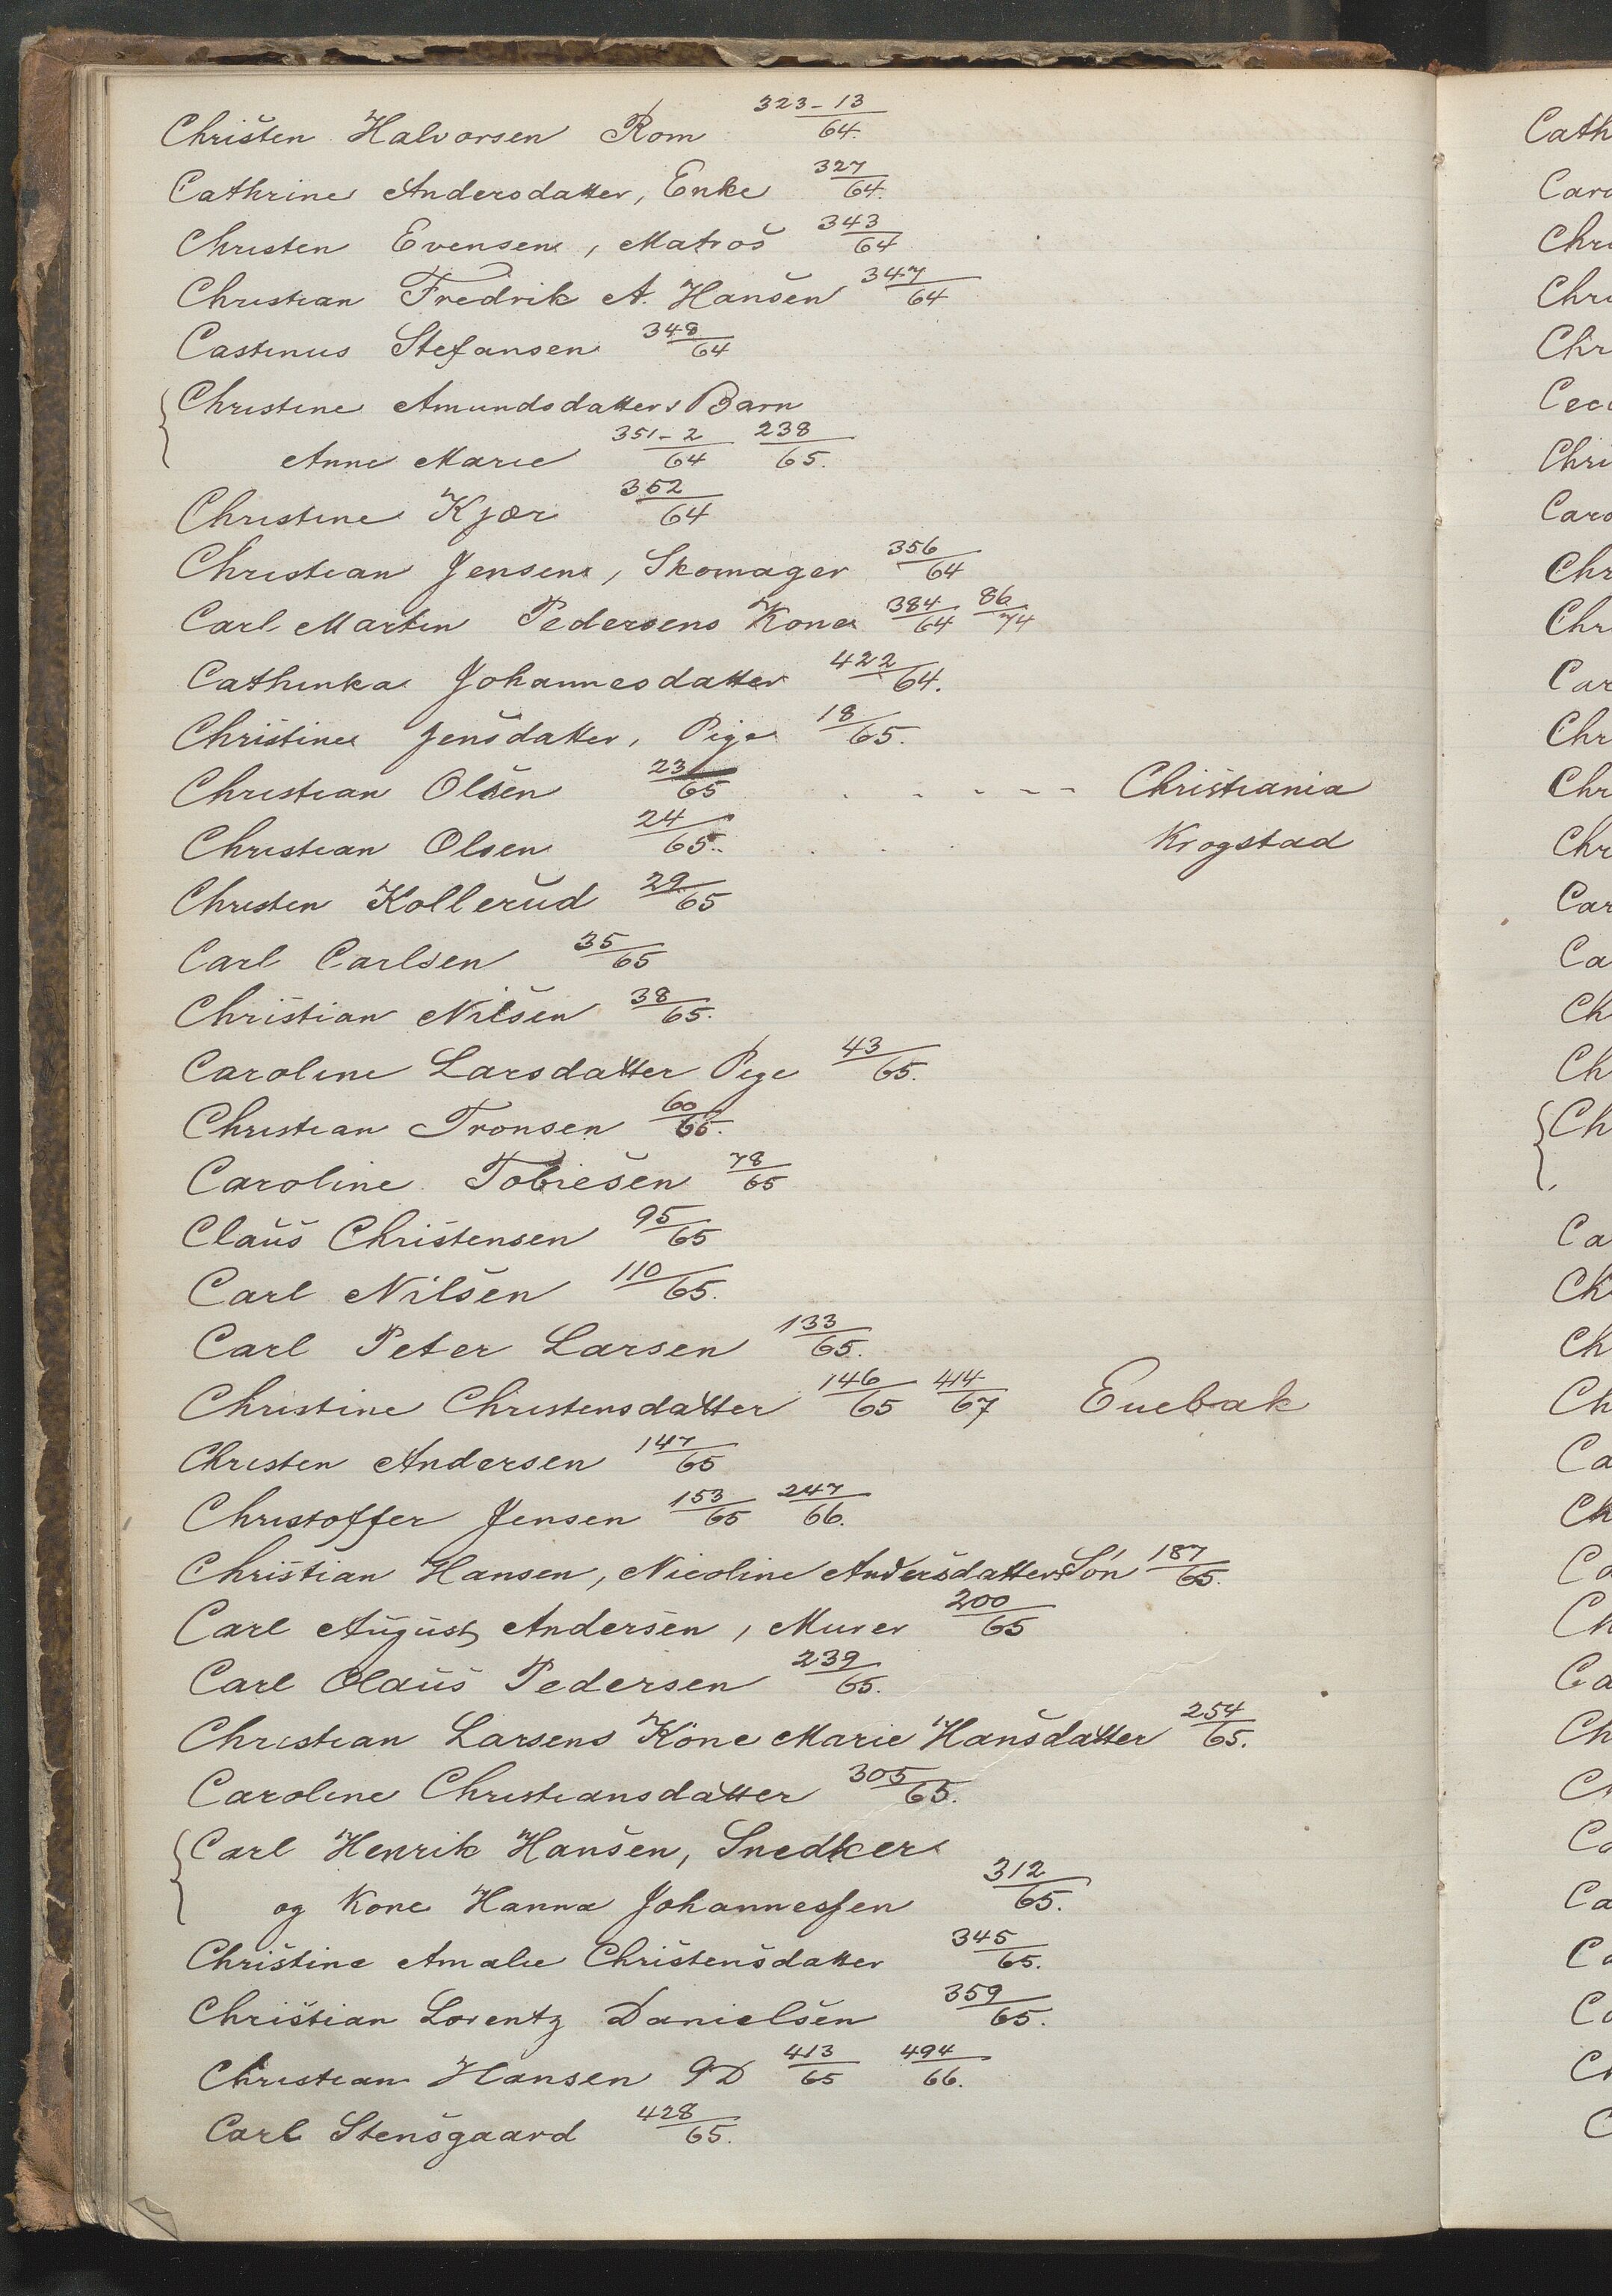 Christen Halvorsen Rom 323-13/64.
Cathrine Andersdatter, Enke 327/64.
Christen Evensen, Matros 343/64
Christian Fredrik A. Hansen 347/64
Castinus Stefansen 348/64
Christine Amundsdatters Barn
Anne Marie 351-2/64 238/65.
Christine Kjær 352/64
Christian Jensen, Skomager 356/64
Carl Martin Pedersens Kone 384/64 86/74
Cathinka Johannesdatter 422/64.
Christine Jensdatter, Pige 18/65.
Christian Olsen 23/65 - - - - - Christiania
Christian Olsen 24/65. . . . Krogstad
Christen Kollerud 29/65
Carl Carlsen 35/65
Christian Nilsen 38/65.
Caroline Larsdatter Pige 43/65.
Christian Tronsen 60/65.
Caroline Tobiesen 78/65
Claus Christensen 95/65
Carl Nilsen 110/65.
Carl Peter Larsen 133/65.
Christine Christensdatter 146/65 414/67 Enebak
Christen Andersen 147/65
Christoffer Jensen 153/65 247/66.
Christian Hansen, Nicoline Andersdatters Søn 187/65.
Carl August Andersen, Murer 200/65
Carl Olaus Pedersen 239/65.
Christian Larsens Kone Marie Hansdatter 254/65.
Caroline Christiansdatter 305/65.
Carl Henrik Hansen, Snedker
og Kone Hanna Johannessen 312/65.
Christine Amalie Christensdatter 345/65.
Christian Lorentz Danielsen 359/65.
Christian Hansen 413/65 494/66.
Carl Stensgaard 428/65.
Cath
Caro
Chri
Chri
Chr
Ceci
Chri
Caro
Chr
Chr
Car
Chr
Chr
Chr
Car
Ca
Ch
Ch
Ch
Ca
Ch
Ch
Ch
Ca
Ch
Ca
Ch
Ca
Ch
C
Ca
Ca
C
C
C
C